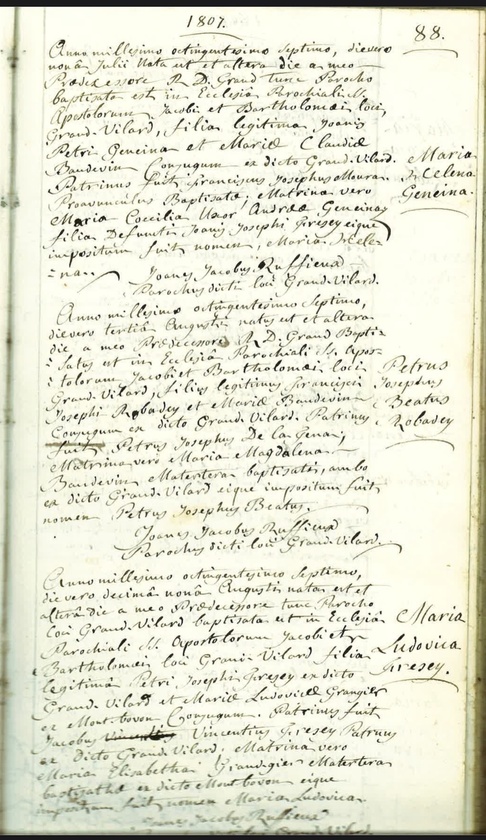 1807.
88.
Anno millesimo octingentesimo septimo, die vero
nonâ Julii Nata est et altera die a meo
Prædecessore R. D. Grand tunc Parocho
baptisata est in Ecclesiâ Parochiali SS.
Apostolorum Jacobi et Bartholomæi loci,
Grand-Vilard, filia legitima Joanis
Petri Geneina et Mariæ Claudiæ
Baudevin Conjugum ex dicto Grand-Vilard.
Patrinus fuit franciscus Josephus Moura
Proavunculus Baptisatæ, Matrina vero
Maria Coecilia Uxor Andreæ Geneina
filia Defuncti Joanis Josephi Gresey eique
impositum fuit nomen, Maria-Hele-
-na.
Joanes Jacobus Ruffieux
Parochus dicti loci Grand-Vilard.
Maria
Helena
Geneina.
Anno millesimo octingentesimo septimo,
die vero tertiâ Augusti natus est et altera
die a meo Prædecessore R. D. Grand Bapti-
-satus est in Ecclesiâ Parochiali SS. Apos-
-tolorum Jacobi et Bartholomæi loci
Grand-Vilard, filius legitimus francisci
Josephi Robadey et Mariæ Baudevin
Conjugum ex dicto Grand-Vilard. Patrinus
fuit Petrus Josephus De la Gena,
Matrina vero Maria Magdalena
Baudevin Matertera baptisati, ambo
ex dicto Grand-Vilard eique impositum fuit
nomen Petrus Josephus Beatus.
Joanes Jacobus Ruffieux
Parochus dicti loci Grand-Vilard.
Petrus
Josephus
Beatus
Robadey
Anno millesimo octingentesimo septimo,
die vero decimâ nonâ Augusti nata est et
alterâ die a meo Prædecessore tunc Parocho
loci Grand-Vilard baptisata est in Ecclesiâ
Parochiali SS. Apostolorum Jacobi et
Bartholomæi loci Grand-Vilard filia
legitimâ Petri Josephi Gresey ex dicto
Grand-Vilard et Mariæ Ludovicæ Grangier
ex Montbovon Conjugum. Patrinus fuit
Jacobus Vincentius Gresey Patruus
ex dicto Grand-Vilard, Matrina vero
Maria Elisabetha Grangier Matertera
baptisatæ ex dicto Montbovon eique
impositum fuit nomen Maria Ludovica.
Joanes Jacobus Ruffieux
Maria
Ludovica
Gresey.